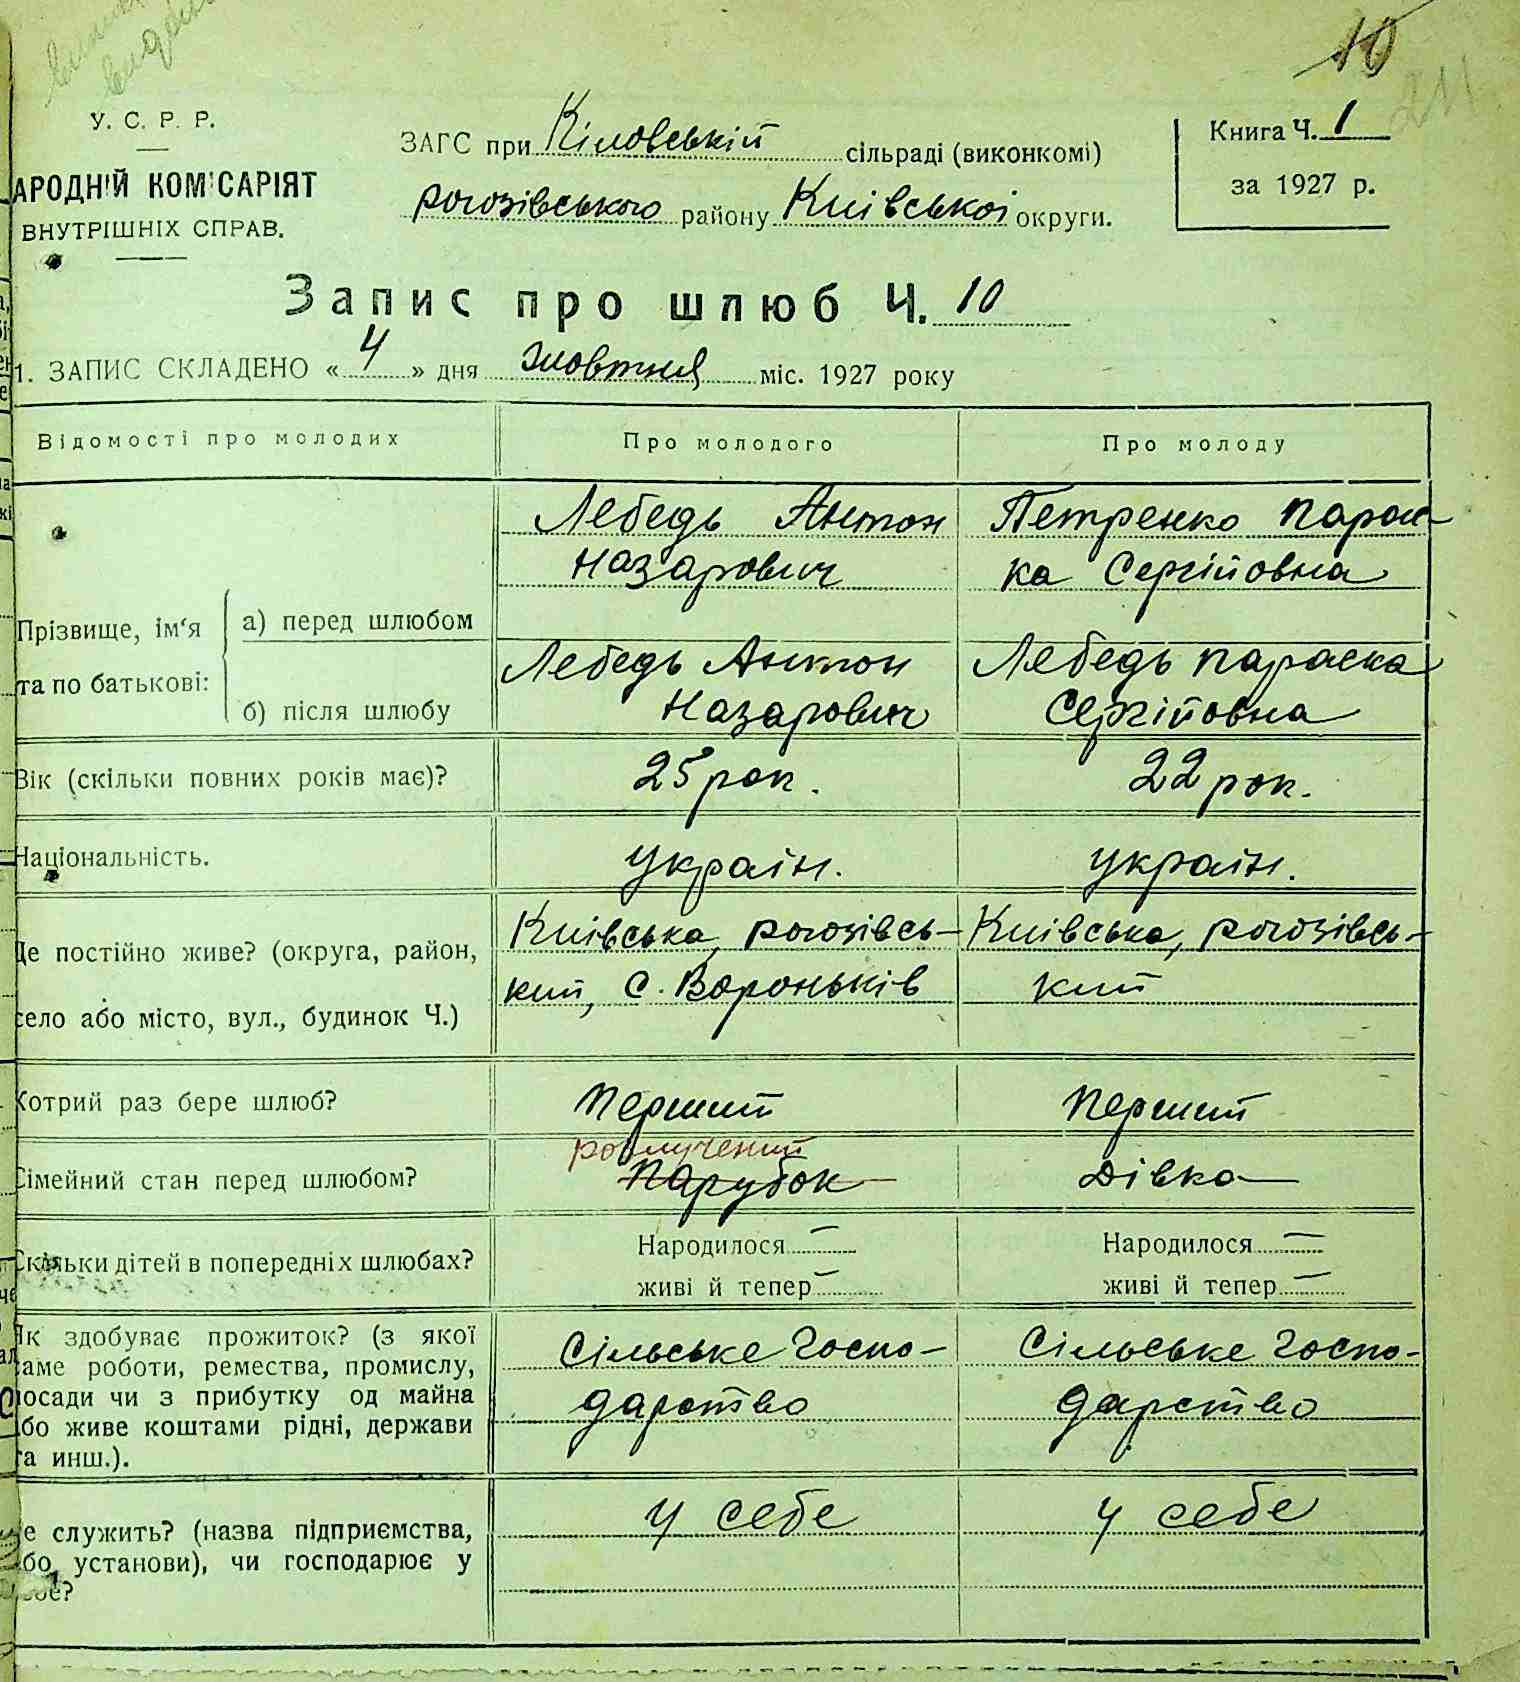 10
211
У. С. Р. Р.
АРОДНІЙ КОМІСАРІЯТ
ВНУТРІШНІХ СПРАВ.
ЗАГС при Кіловській сільраді (виконкомі)
рогозівського району Київської округи.
Книга Ч. 1
за 1927 р.
Запис про шлюб Ч. 10
1. ЗАПИС СКЛАДЕНО « 4 » дня жовтня міс. 1927 року
Відомості про молодих
Про молодого
Про молоду
Прізвище, ім'я
та по батькові:
а) перед шлюбом
Лебедь Антон
Назарович
Петренко Парас-
ка Сергійовна
б) після шлюбу
Лебедь Антон
Назарович
Лебедь Параска
Сергійовна
Вік (скільки повних років має)?
25 рок.
22 рок.
Національність.
україн.
україн.
Де постійно живе? (округа, район,
село або місто, вул., будинок Ч.)
Київська, рогозівсь-
кий, с. Вороньків
Київська, рогозівсь-
кий
Котрий раз бере шлюб?
Перший
Перший
Сімейний стан перед шлюбом?
розлучений
Парубок
Дівка
Скільки дітей в попередніх шлюбах?
Народилося —
живі й тепер —
Народилося —
живі й тепер —
Як здобуває прожиток? (з якої
саме роботи, ремества, промислу,
посади чи з прибутку од майна
або живе коштами рідні, держави
та инш.).
Сільське госпо-
дарство
Сільське госпо-
дарство
е служить? (назва підприємства,
або установи), чи господарює у
себе?
у себе
у себе